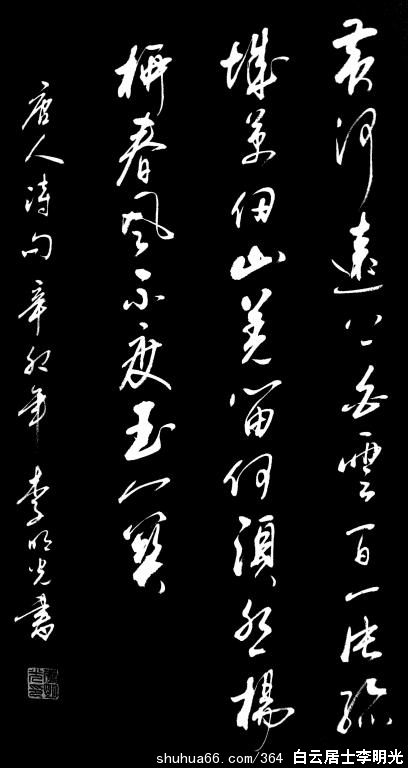 黄河遠上白雲間一片孤
城萬仞山羌笛何須怨楊
柳春風不度玉門關
唐人诗句 辛卯年 李明光書
shuhua66.com/364 白云居士李明光